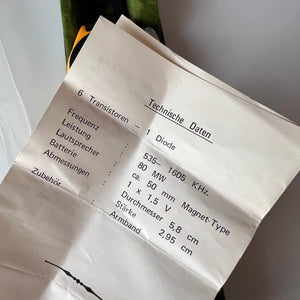 Technische Daten
6 Transistoren - 1 Diode
Frequenz : 535- 1605 KHz
Leistung : 80 MW
Lautsprecher : ca. 50 mm Magnet-Type
Batterie : 1 x 1,5 V.
Abmessungen : Durchmesser 5,8 cm
Stärke 2,95 cm
Zubehör : Armband